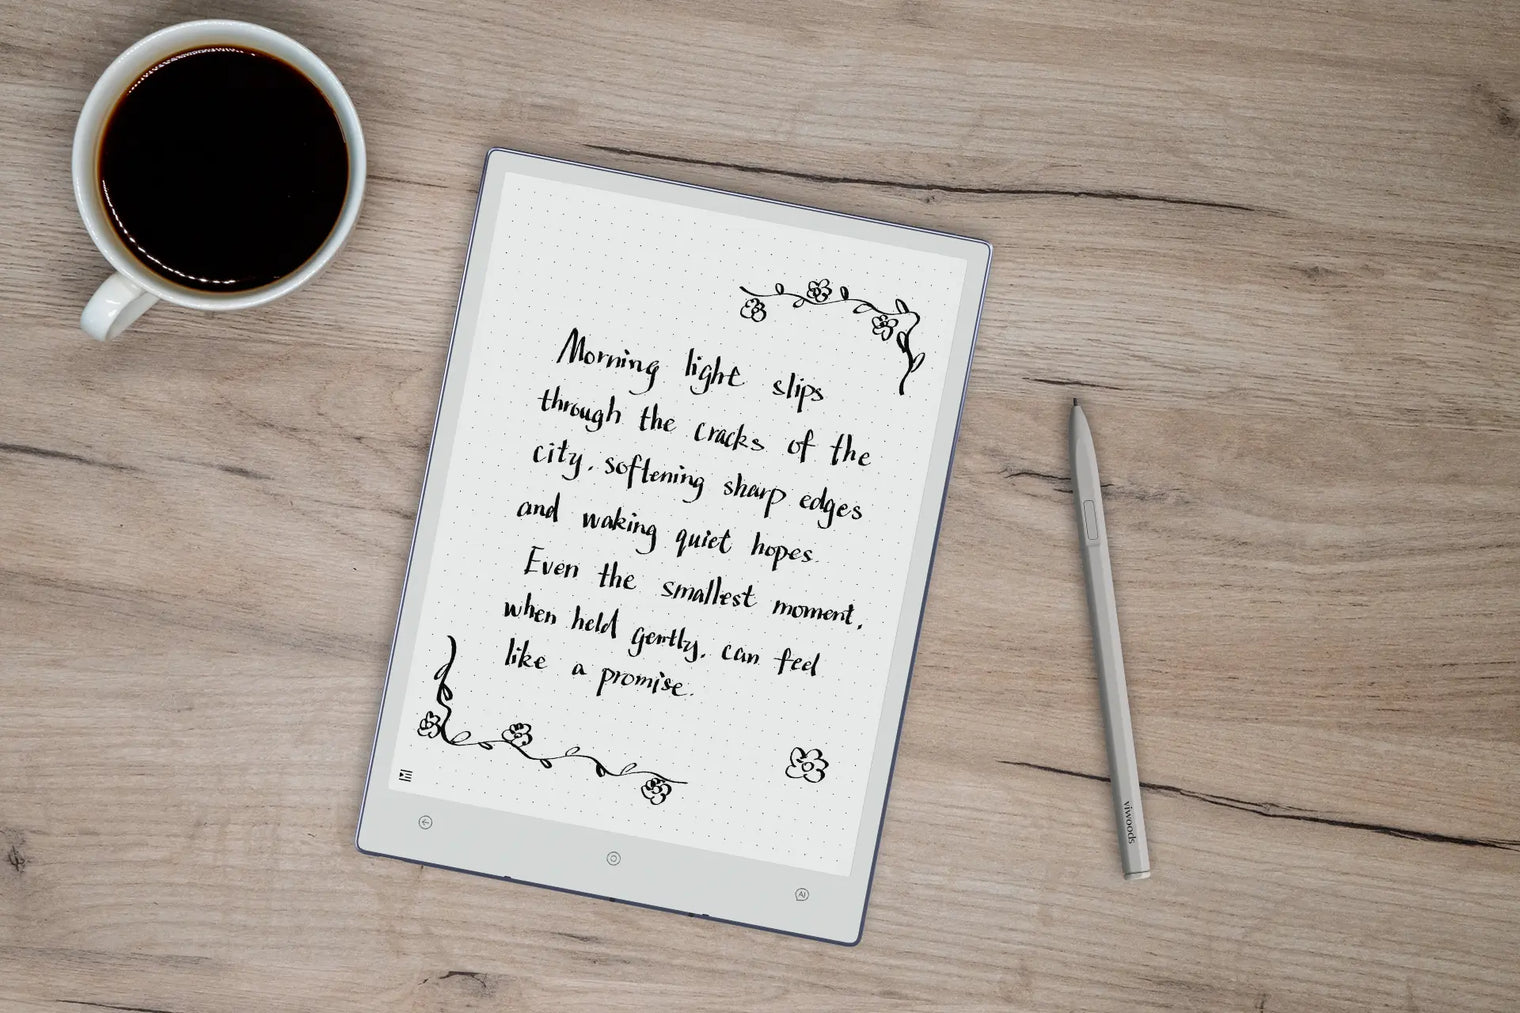 Morning light slips
through the cracks of the
city, softening sharp edges
and waking quiet hopes.
Even the smallest moment,
when held gently, can feel
like a promise.
AI
viwoods